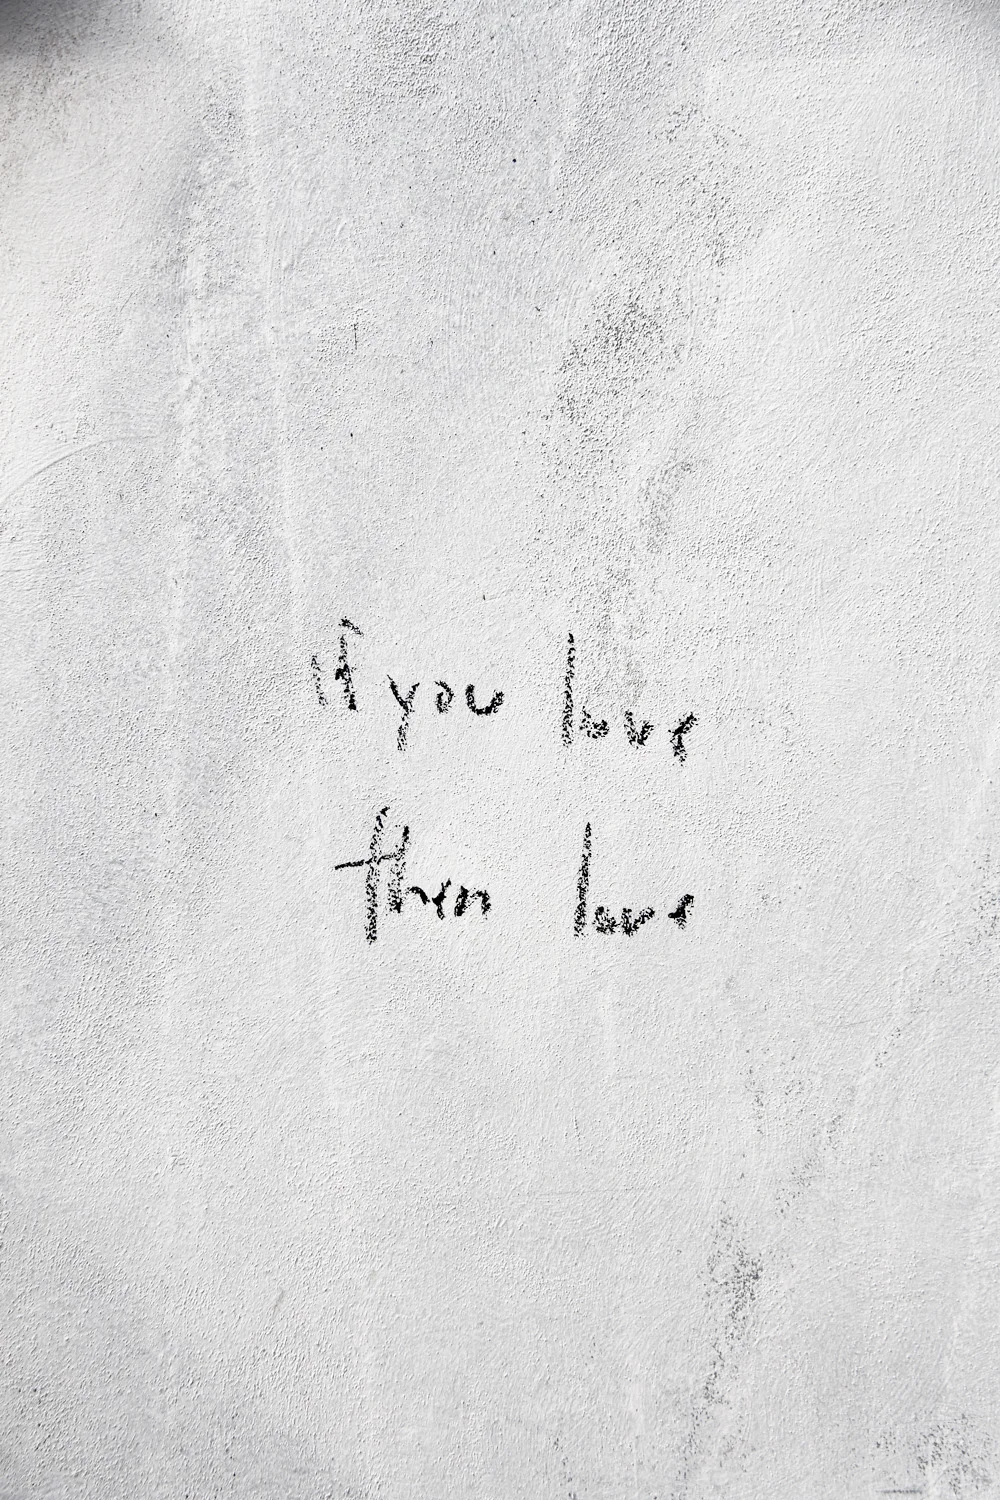 if you love
then love